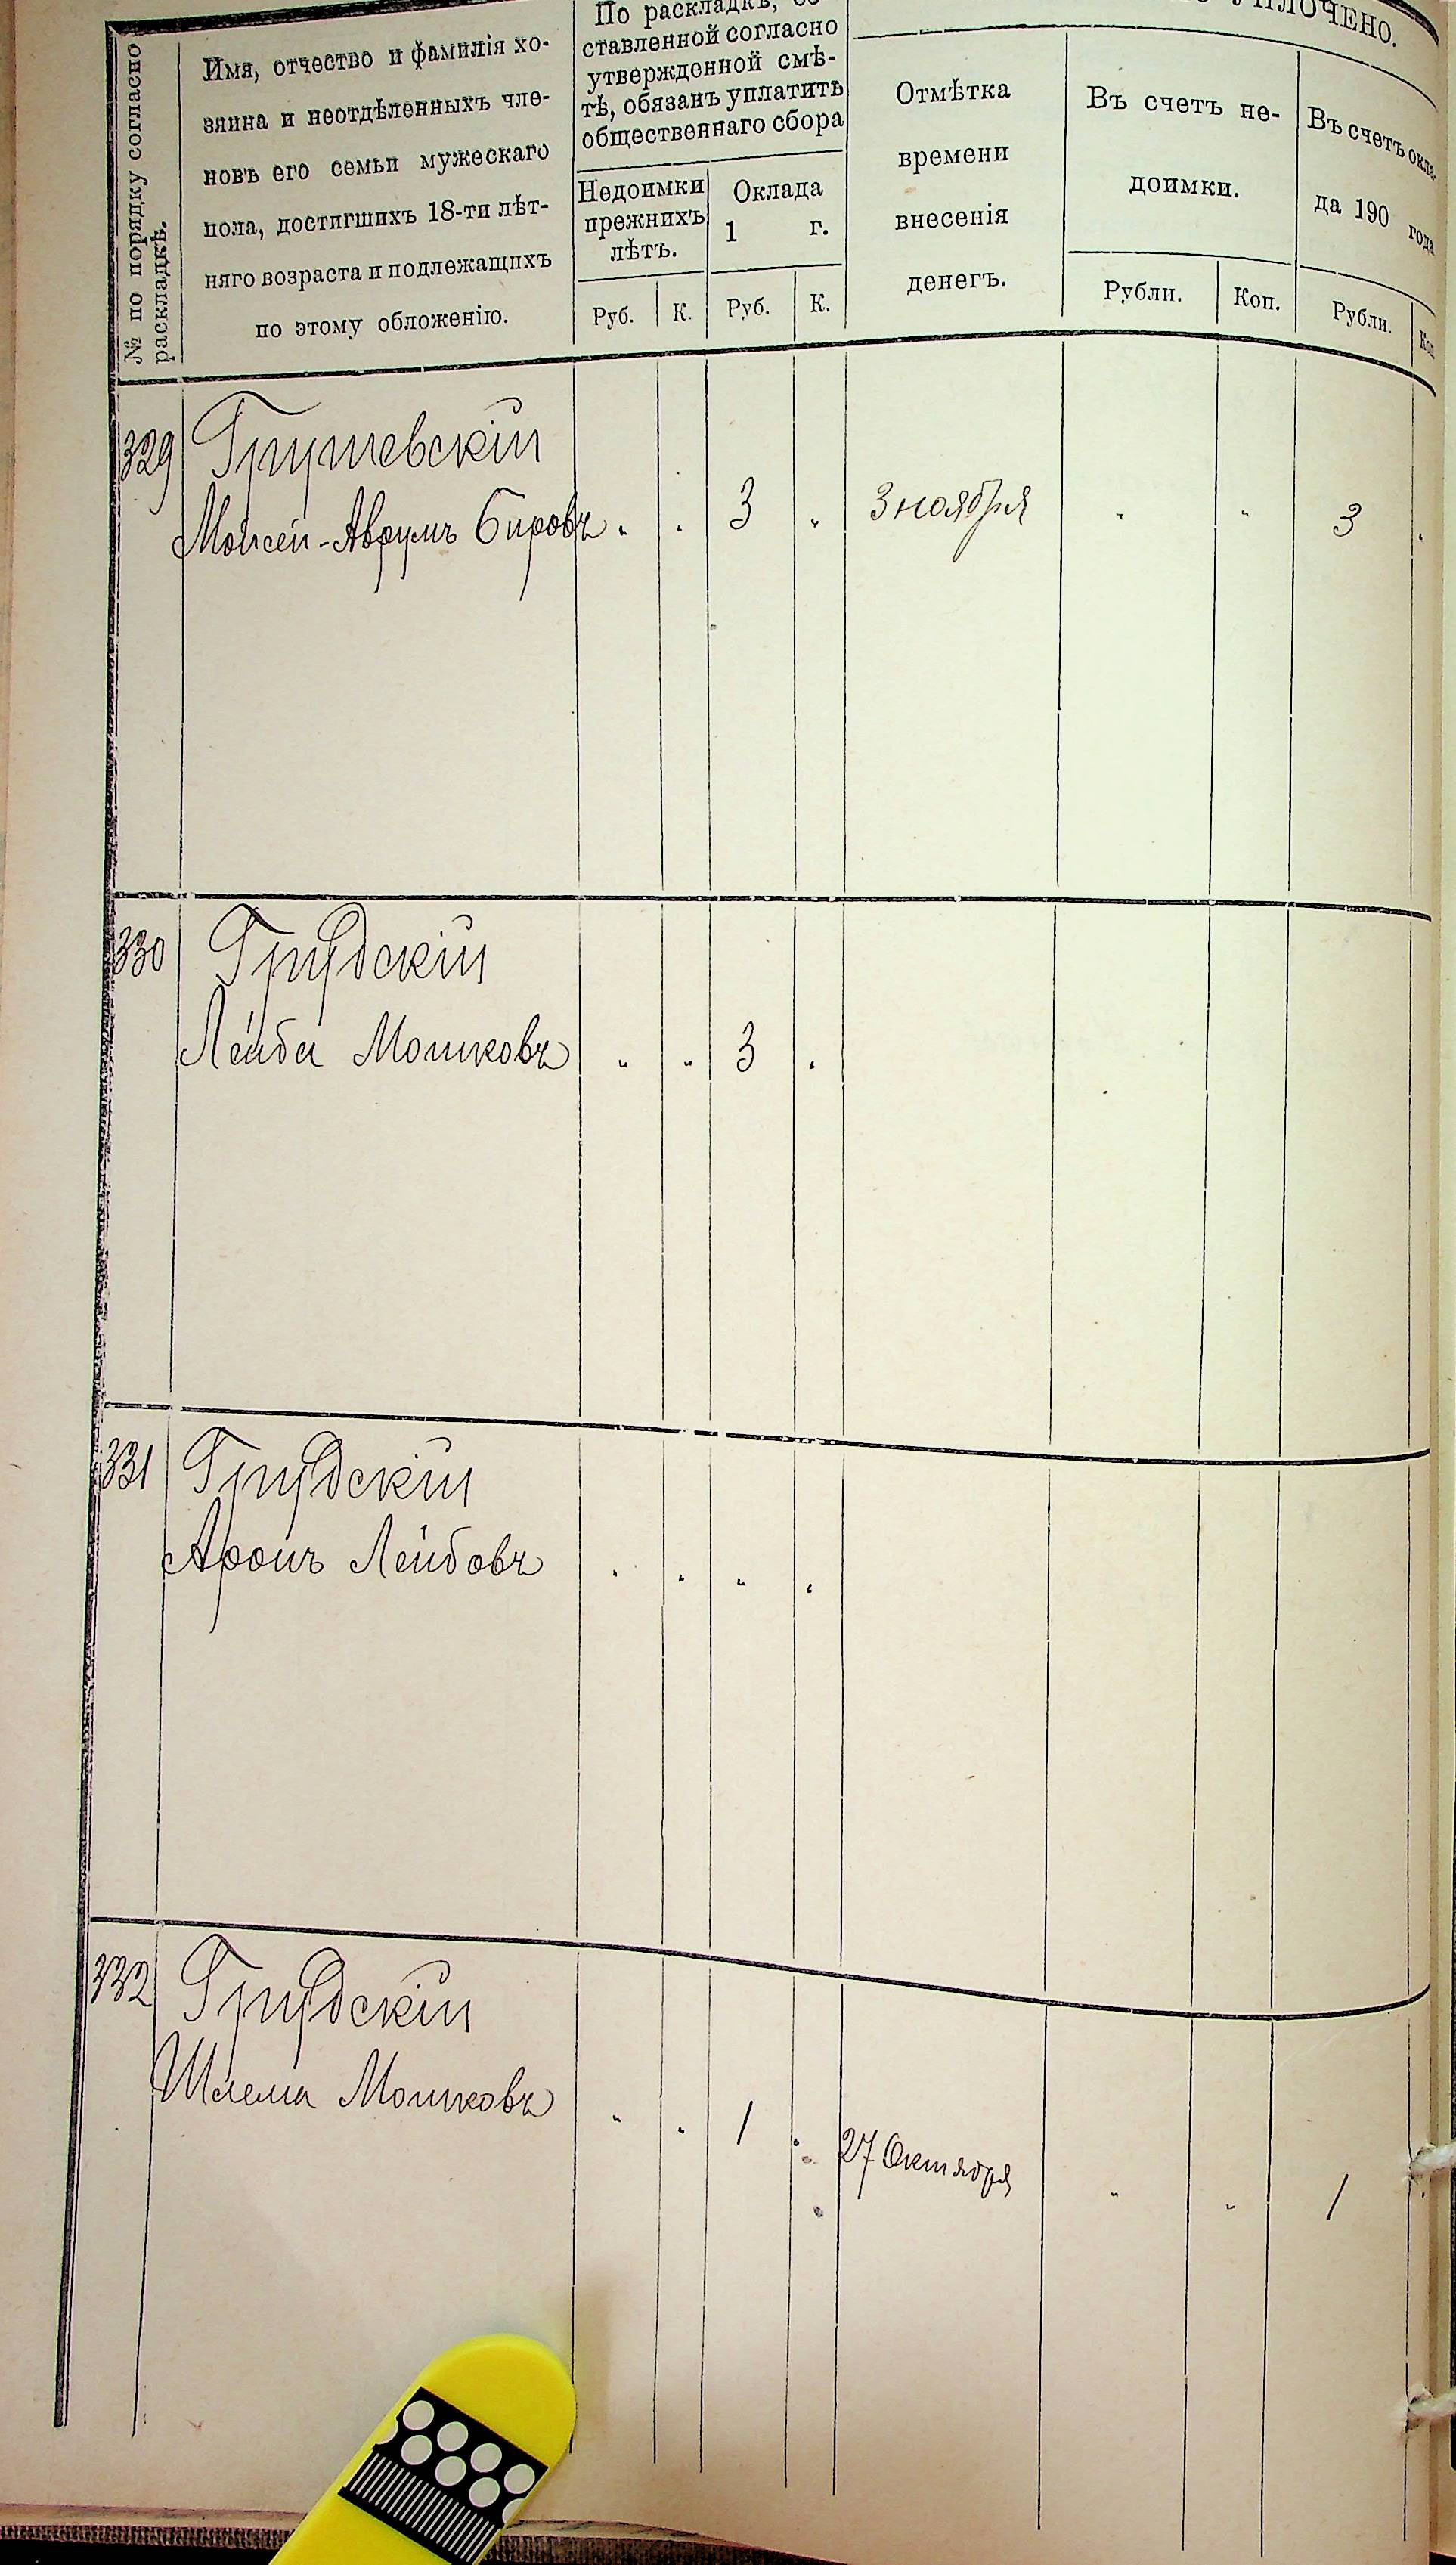 № по порядку согласно
раскладкѣ.
Имя, отчество и фамилія хо-
зяина и неотдѣленныхъ чле-
новъ его семьи мужескаго
пола, достигшихъ 18-ти лѣт-
няго возраста и подлежащихъ
по этому обложенію.
По раскладкѣ, со-
ставленной согласно
утвержденной смѣ-
тѣ, обязанъ уплатить
общественнаго сбора
Недоимки
прежнихъ
лѣтъ.
Оклада
1 г.
Руб. К. Руб. К.
УПЛОЧЕНО.
Отмѣтка
времени
внесенія
денегъ.
Въ счетъ не-
доимки.
Рубли. Коп.
Въ счетъ окла-
да 190 года
Рубли. Коп.
329 Грушевскій
Мойсей-Аврумъ Беровъ „ „ 3 „ 3 ноября „ „ 3 „
330 Грудскій
Лейба Мошковъ „ „ 3 „
331 Грудскій
Аронъ Лейбовъ „ „ „ „
332 Грудскій
Шлема Мошковъ „ „ 1 „ 27 Октября „ „ 1 „